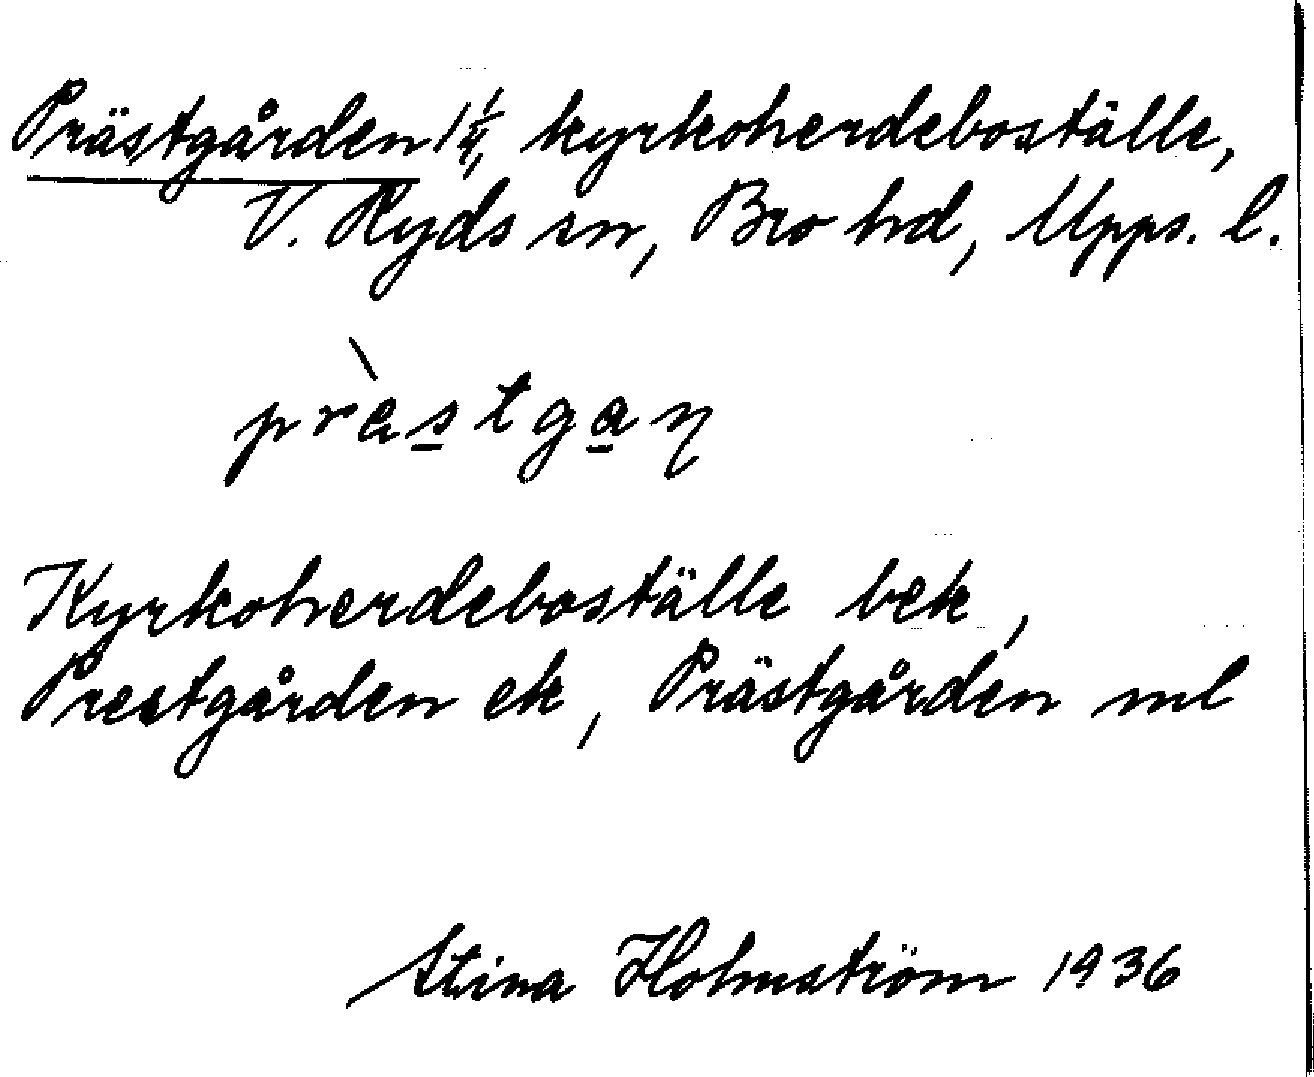 Prästgården 1 1/4, kyrkoherdeboställe,
V. Ryds sn, Bro hd, Upps. l.
prὰstgaη
Kyrkoherdeboställe bek,
Prestgården ek, Prästgården ml
Stina Holmström 1936